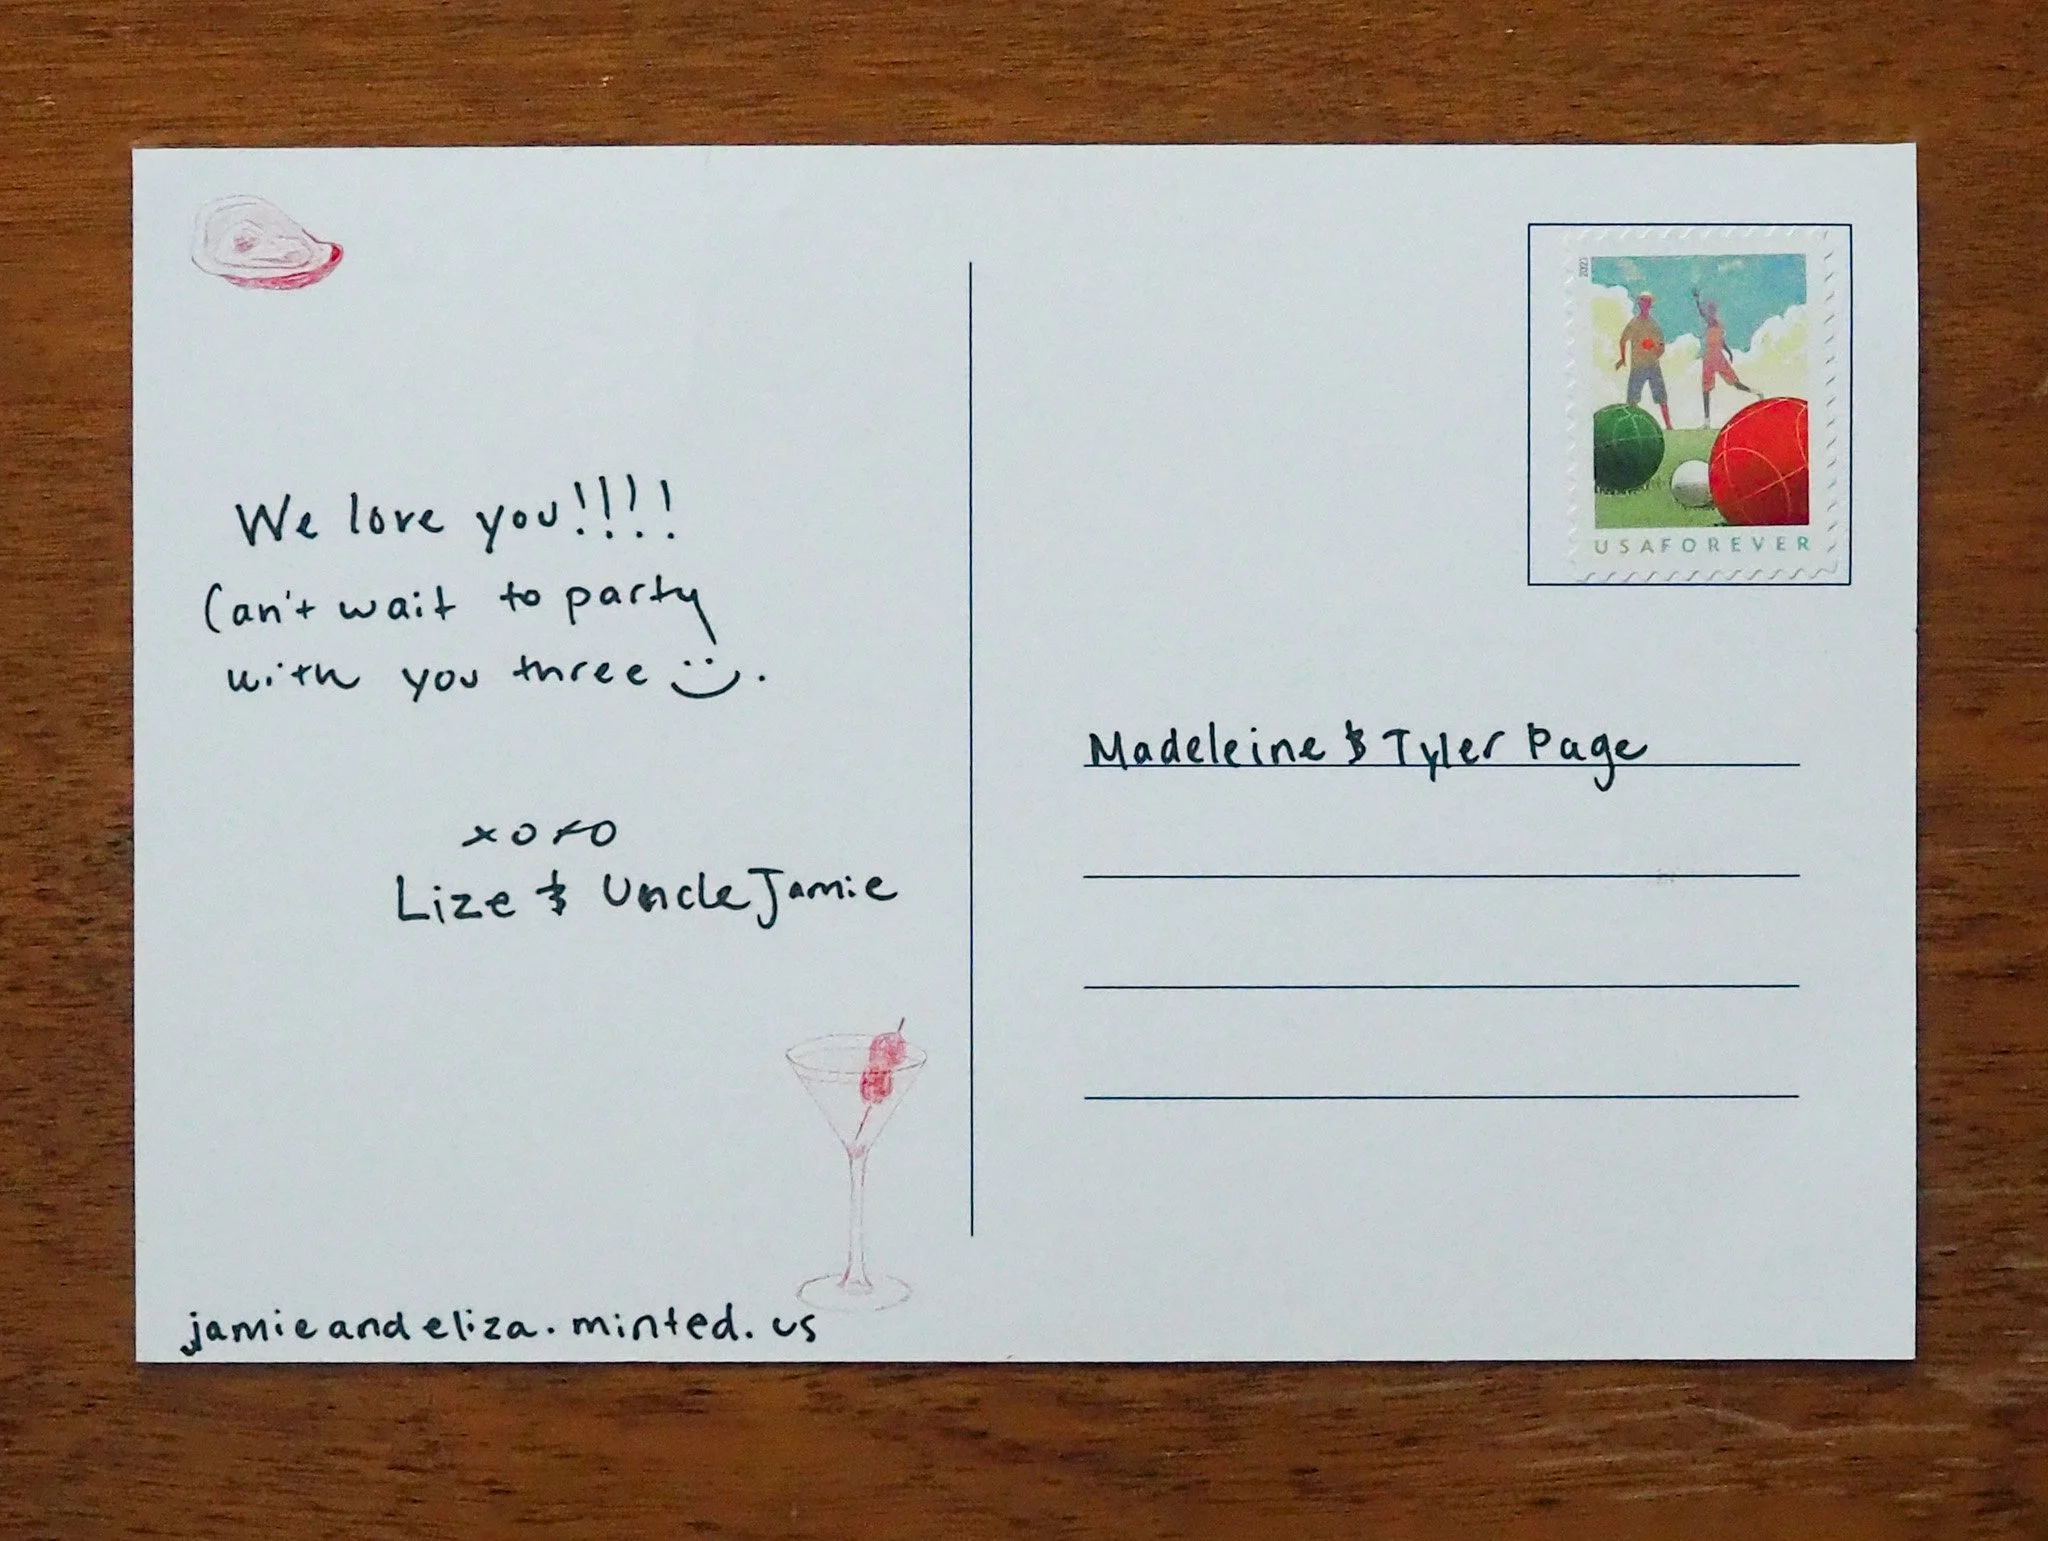 We love you!!!!
Can't wait to party
with you three :).
xoxo
Lize & Uncle Jamie
jamieandeliza.minted.us
2021
USAFOREVER
Madeleine & Tyler Page